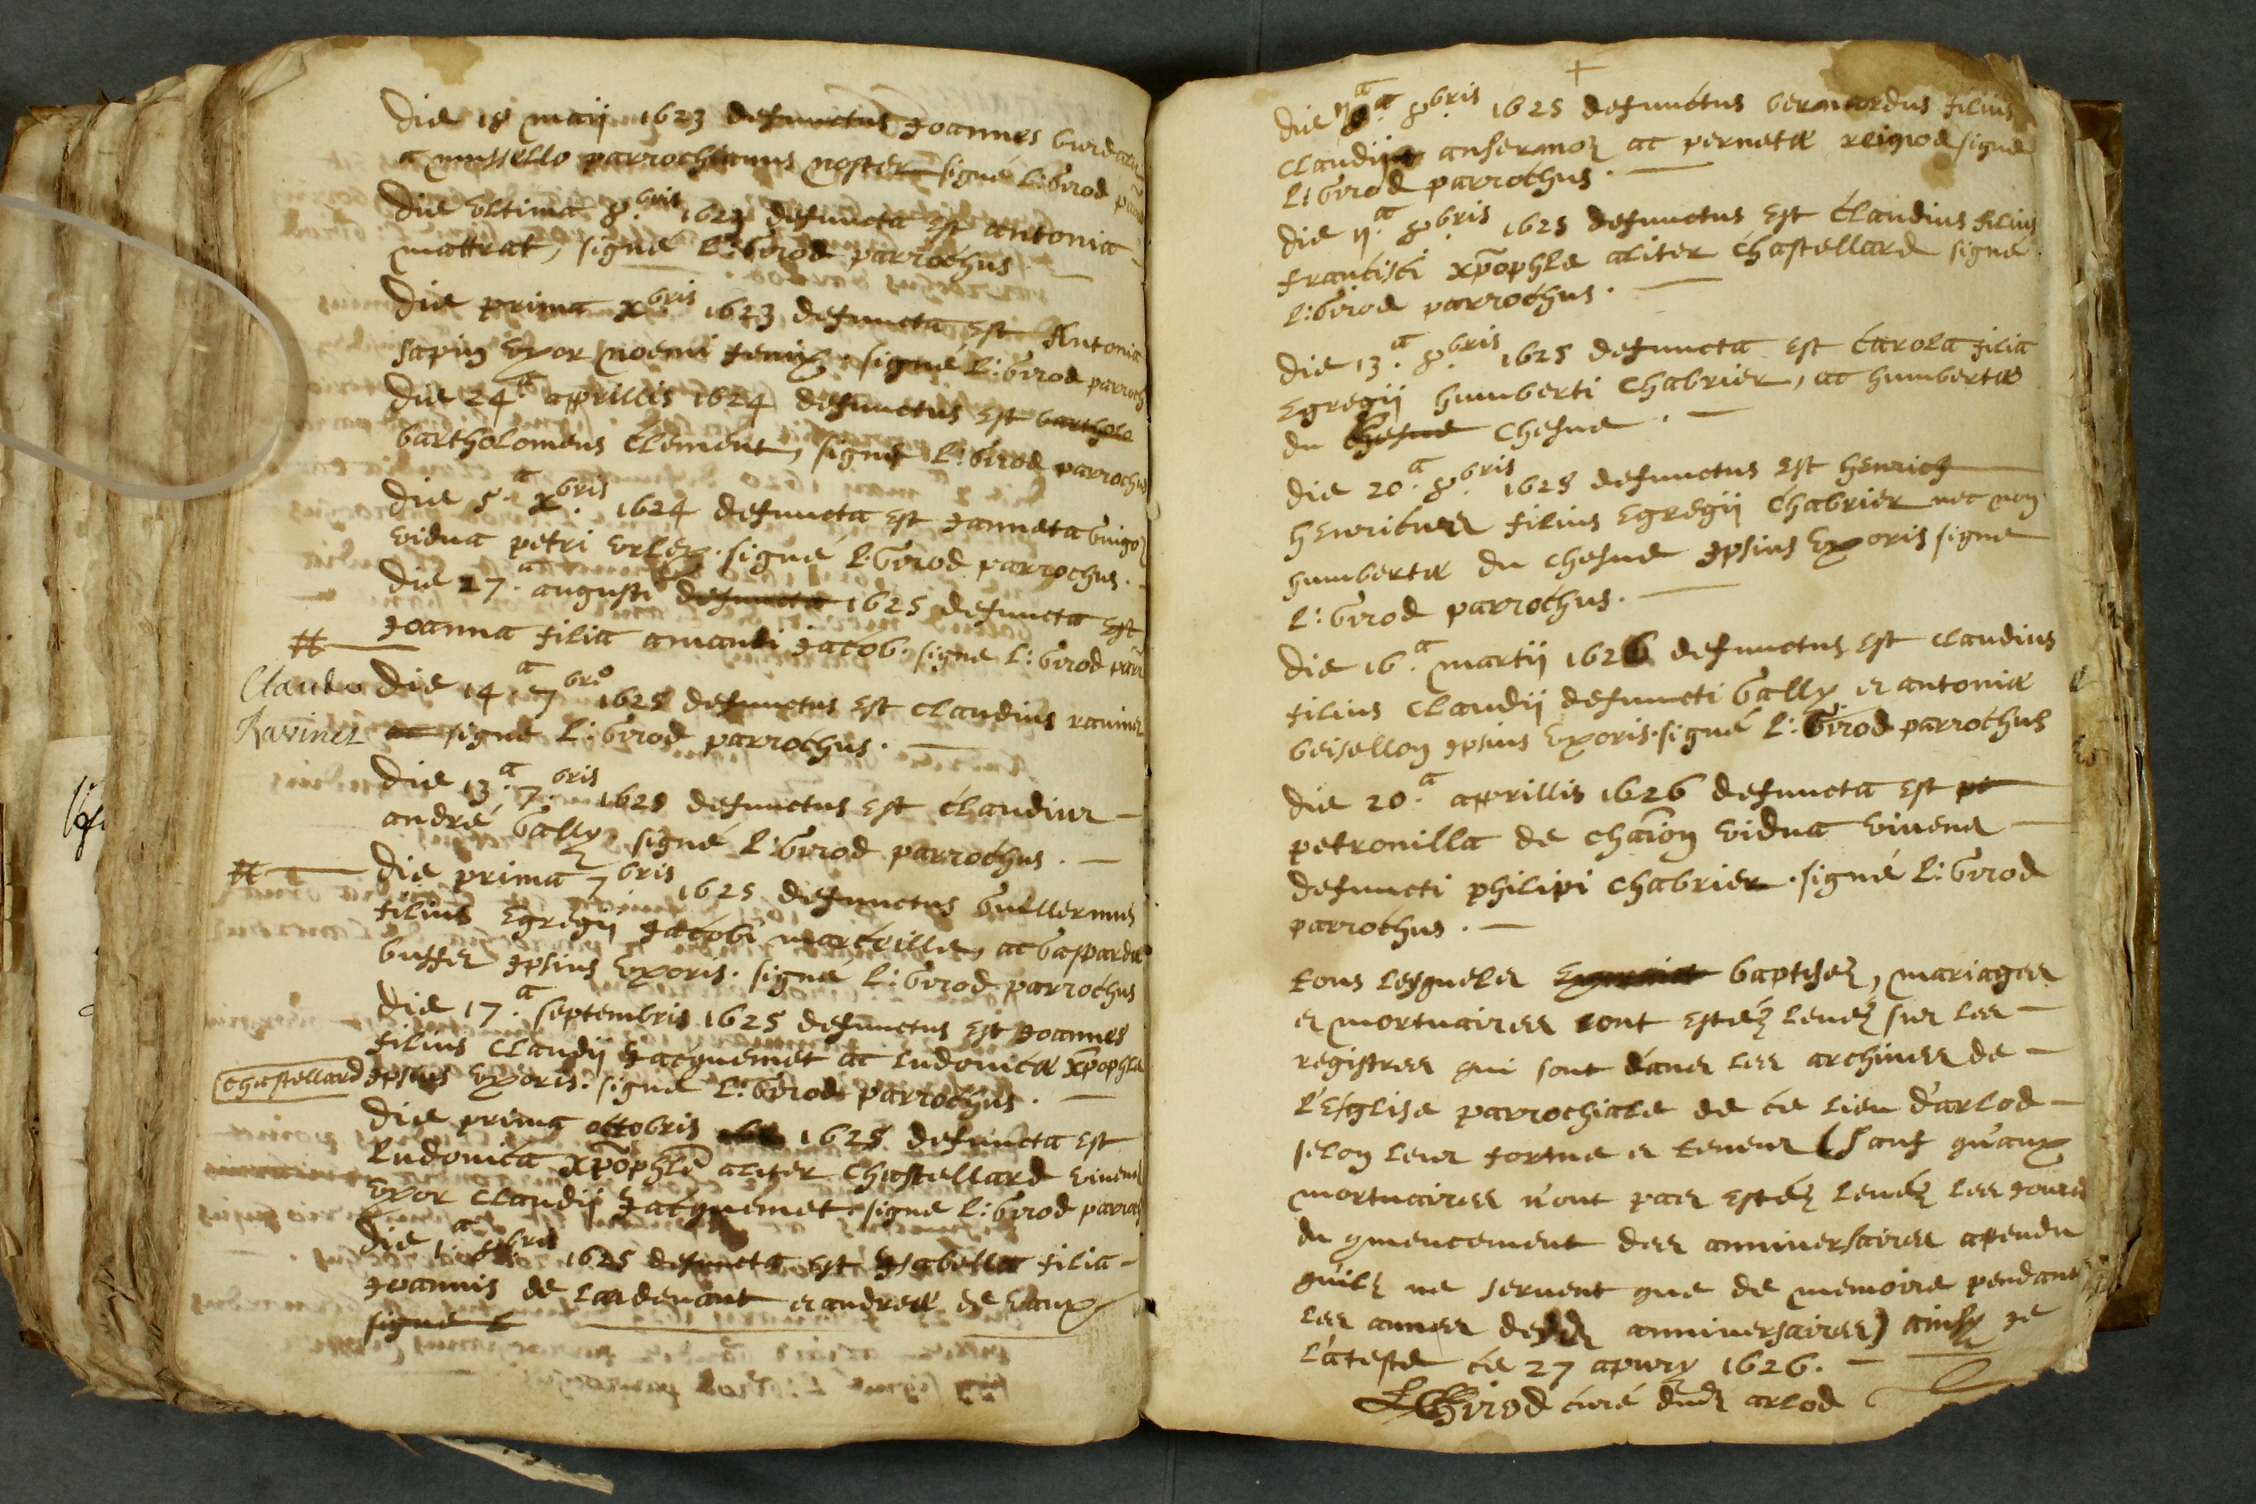 Die 18 maij 1623 defunctus Joannes
a mussello parrochianus noster signé L: Girod
Die Vltima 8.bris 1623 defuncta Est antonia
mattrat, signé L: Girod parrochus.
Die prima X.bris 1623 defuncta Est Antonia
sapin Vxor noemi Jenix. signé L: Girod parroch
Die 24a aprillis 1624 defunctus Est bartholo
bartholomeus Clement, signé L: Girod parrochus
Die 5.a X.bris 1624 defuncta Est Janneta Guigo
vidua petri vrlex. signé L. Girod parrochus.
Die 27.a augusti defuncta 1625 defuncta Est
Joanna filia amandi Jacob. signé L: Girod parr
#
Claude
Ravinet
Die 14.a 7.bris 1625 defunctus Est Claudius ravinet
ac signé L: Girod parrochus.
Die 13.a 7.bris 1625 defunctus Est Claudius
andré Gally signé L: Girod parrochus.
#
Die prima 7.bris 1625 defunctus Guillermus
filius Egregij Jacobi marcville, ac Gaspardæ
buffet Ipsius Vxoris. signé L: Girod parrochus
Die 17.a septembris 1625 defunctus Est Joannes
filius Claudij Jacquemet ac Ludovicæ Xpophle
Chastellard
Ipsius Vxoris. signé L: Girod parrochus.
Die prima ottobris 1625 defuncta Est
Ludovica Xpophle aliter Chastellard vivens
Vxor Claudij Jacquemet signé L: Girod parroc
Die 1.a 8.bris 1625 defuncta Est Isabella filia
Joannis de Lardenant et andreæ de Vaux
signé L
+
Die 8.a 8.bris 1625 defunctus bernardus filius
Claudij ansermoz ac pernetæ reimod signé
L: Girod parrochus.
Die 11.a 8.bris 1625 defunctus Est Claudius filius
francisci Xpophle aliter Chastellard signé
L: Girod parrochus.
Die 13.a 8.bris 1625 defuncta Est Carola filia
Egregij humberti Chabrier, ac humbertæ
du Chesne Chesne.
Die 20.a 8.bris 1625 defunctus Est henrich
henricus filius Egregij Chabrier nec non
humbertæ du Chesne Ipsius Vxoris signé
L: Girod parrochus.
Die 16.a martij 1626 defunctus Est Claudius
filius Claudij defuncti Gally et antoniæ
beisellon Ipsius Vxoris. signé L: Girod parrochus
Die 20.a aprillis 1626 defuncta Est pe
petronilla de chaion vidua vivens
defuncti philipi Chabrier. signé L: Girod
parrochus.
tous lesquels baptisez, mariages
et mortuaires sont estéz levéz sur les
registres qui sont dans les archives de
l'Esglise parrochiale de ce lieu d'arlod
selon leur forme et teneur (sauf qu'aux
mortuaires n'ont pas estéz levéz les Jours
du gmencement des anniversaires apendu
quilz ne servent que de memoire pendant
les annes desdz anniversaires) ainsy Je
l'ateste ce 27 apvry 1626.
L Girod curé dudz arlod